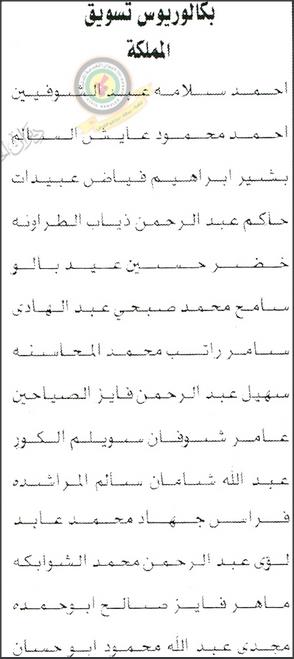 بكالوريوس تسويق
المملكة
احمد سلامه عبد الصوفيين
احمد محمود عايش السالم
بشير ابراهيم فياض عبيدات
حاكم عبد الرحمن ذياب الطراونه
خضر حسين عيد بالو
سامح محمد صبحي عبد الهادى
سامر راتب محمد المحاسنه
سهيل عبد الرحمن فايز الصياحين
عامر شوفان سويلم الكور
عبد الله شامان سالم المراشده
فراس جهاد محمد عابد
لؤى عبد الرحمن محمد الشوابكه
ماهر فايز صالح ابوحمده
مجدي عبد الله محمود ابو حسان